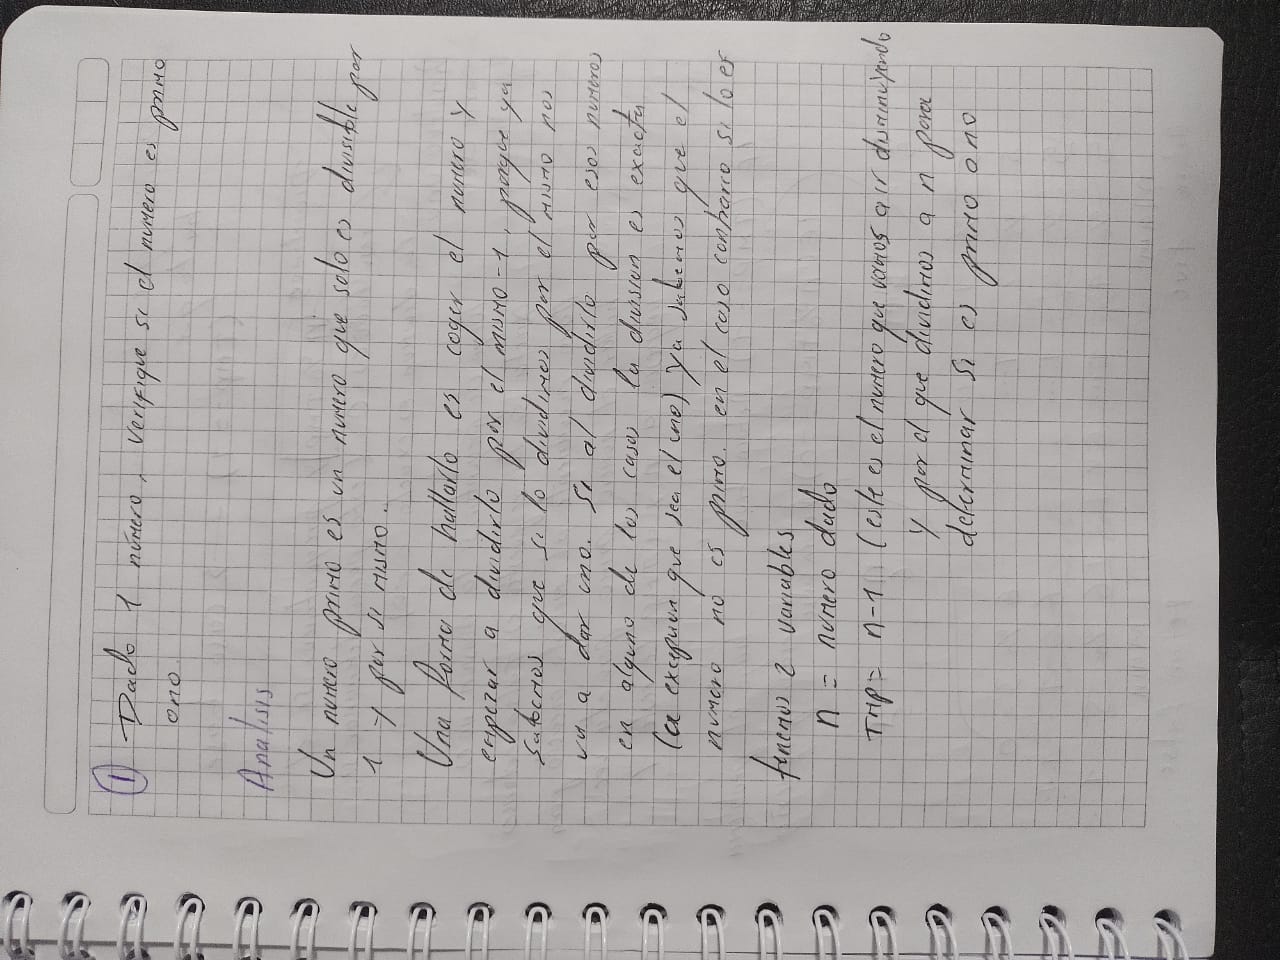 1 Dado 1 número, verifique si el numero es primo
ono.
Analisis
Un numero primo es un numero que solo es divisible por
1 y por si mismo.
Una forma de hallarlo es coger el numero y
empezar a dividirlo por el mismo-1, porque ya
sabemos que si lo dividimos por el mismo nos
va a dar uno. Si al dividirlo por esos numeros
en alguno de los casos la division es exacta
(a excepcion que sea el uno) ya sabemos que el
numero no es primo. en el caso contrario si lo es
tenemos 2 variables
n = numero dado
TMP = n-1 (este es el numero que vamos a ir disminuyendo
y por el que dividimos a n para
determinar si es primo ono